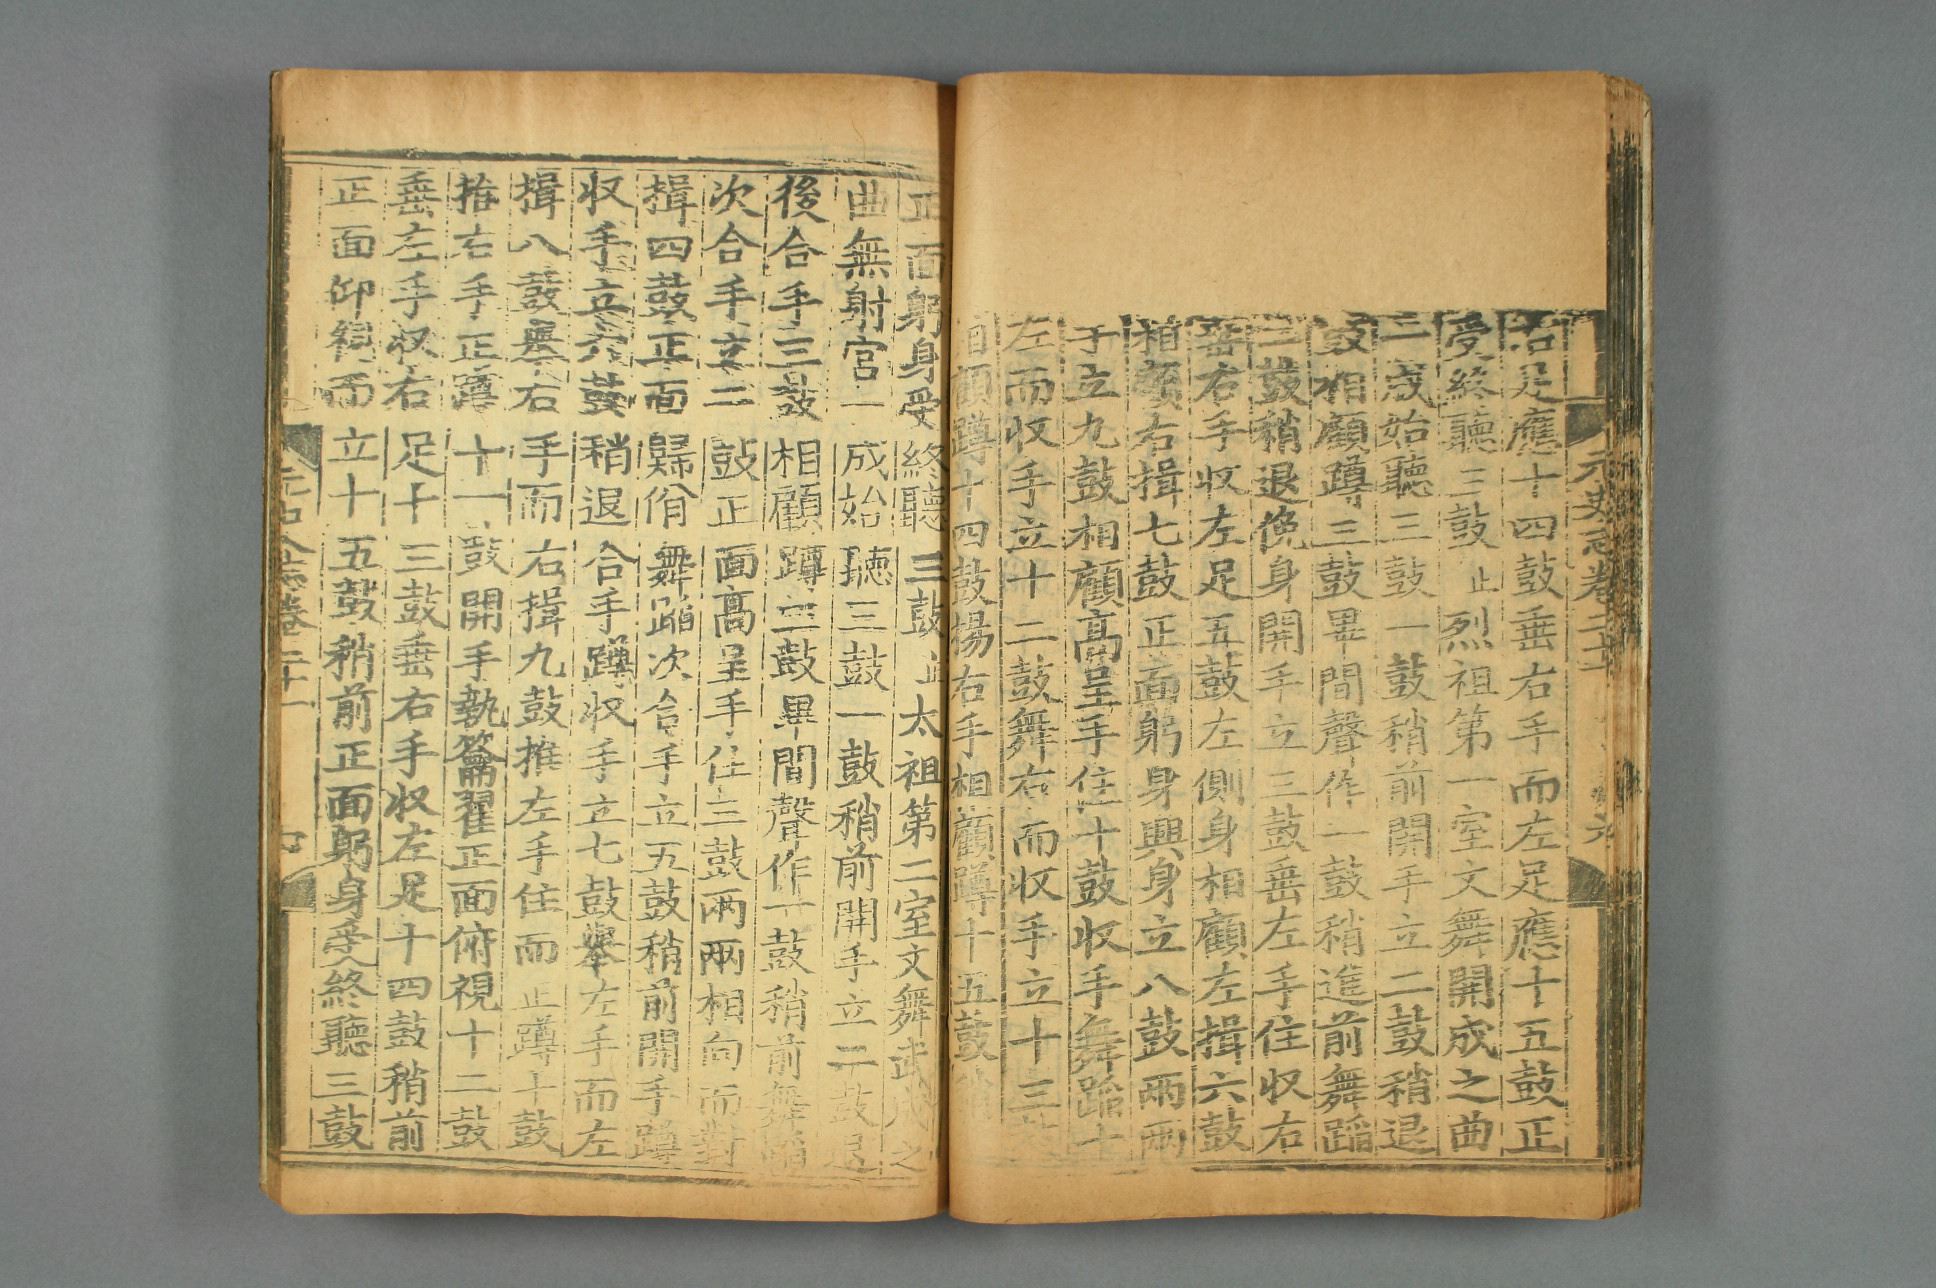 元史志卷二十
治足應十四鼓垂右手而左足應十五鼓正
受終聽三鼓止烈祖第一室文舞開成之曲
一成始聽三鼓一鼓稍前開手立二鼓稍退
鼓相顧蹲三鼓畢間聲作一鼓稍進前舞蹈
二鼓稍退俛身開手立三鼓垂左手住收右
垂右手收左足五鼓左側身相顧左揖六鼓
相顧右揖七鼓正面躬身興身立八鼓兩兩
于立九鼓相顧高呈手住十鼓收手舞蹈十
左而收手立十二鼓舞右而收手立十三
相顧蹲十四鼓揚右手相顧蹲十五鼓稍
正面躬身受終聽三鼓止太祖第二室文舞武成之
曲無射宮一成始聽三鼓一鼓稍前開手立二鼓退
後合手三鼓相顧蹲三鼓畢間聲作一鼓稍前舞蹈
次合手立二鼓正面高呈手住三鼓兩兩相向而對
揖四鼓正面歸佾舞蹈次合手立五鼓稍前開手蹲
収手立六鼓稍退合手蹲収手立七鼓舉左手而左
揖八鼓舉右手而右揖九鼓推左手住而正蹲十鼓
推右手正蹲十一鼓開手執籥翟正面俯視十二鼓
垂左手収右足十三鼓垂右手収左足十四鼓稍前
正面仰視而立十五鼓稍前正面躬身受終聽三鼓
志卷二十一
四